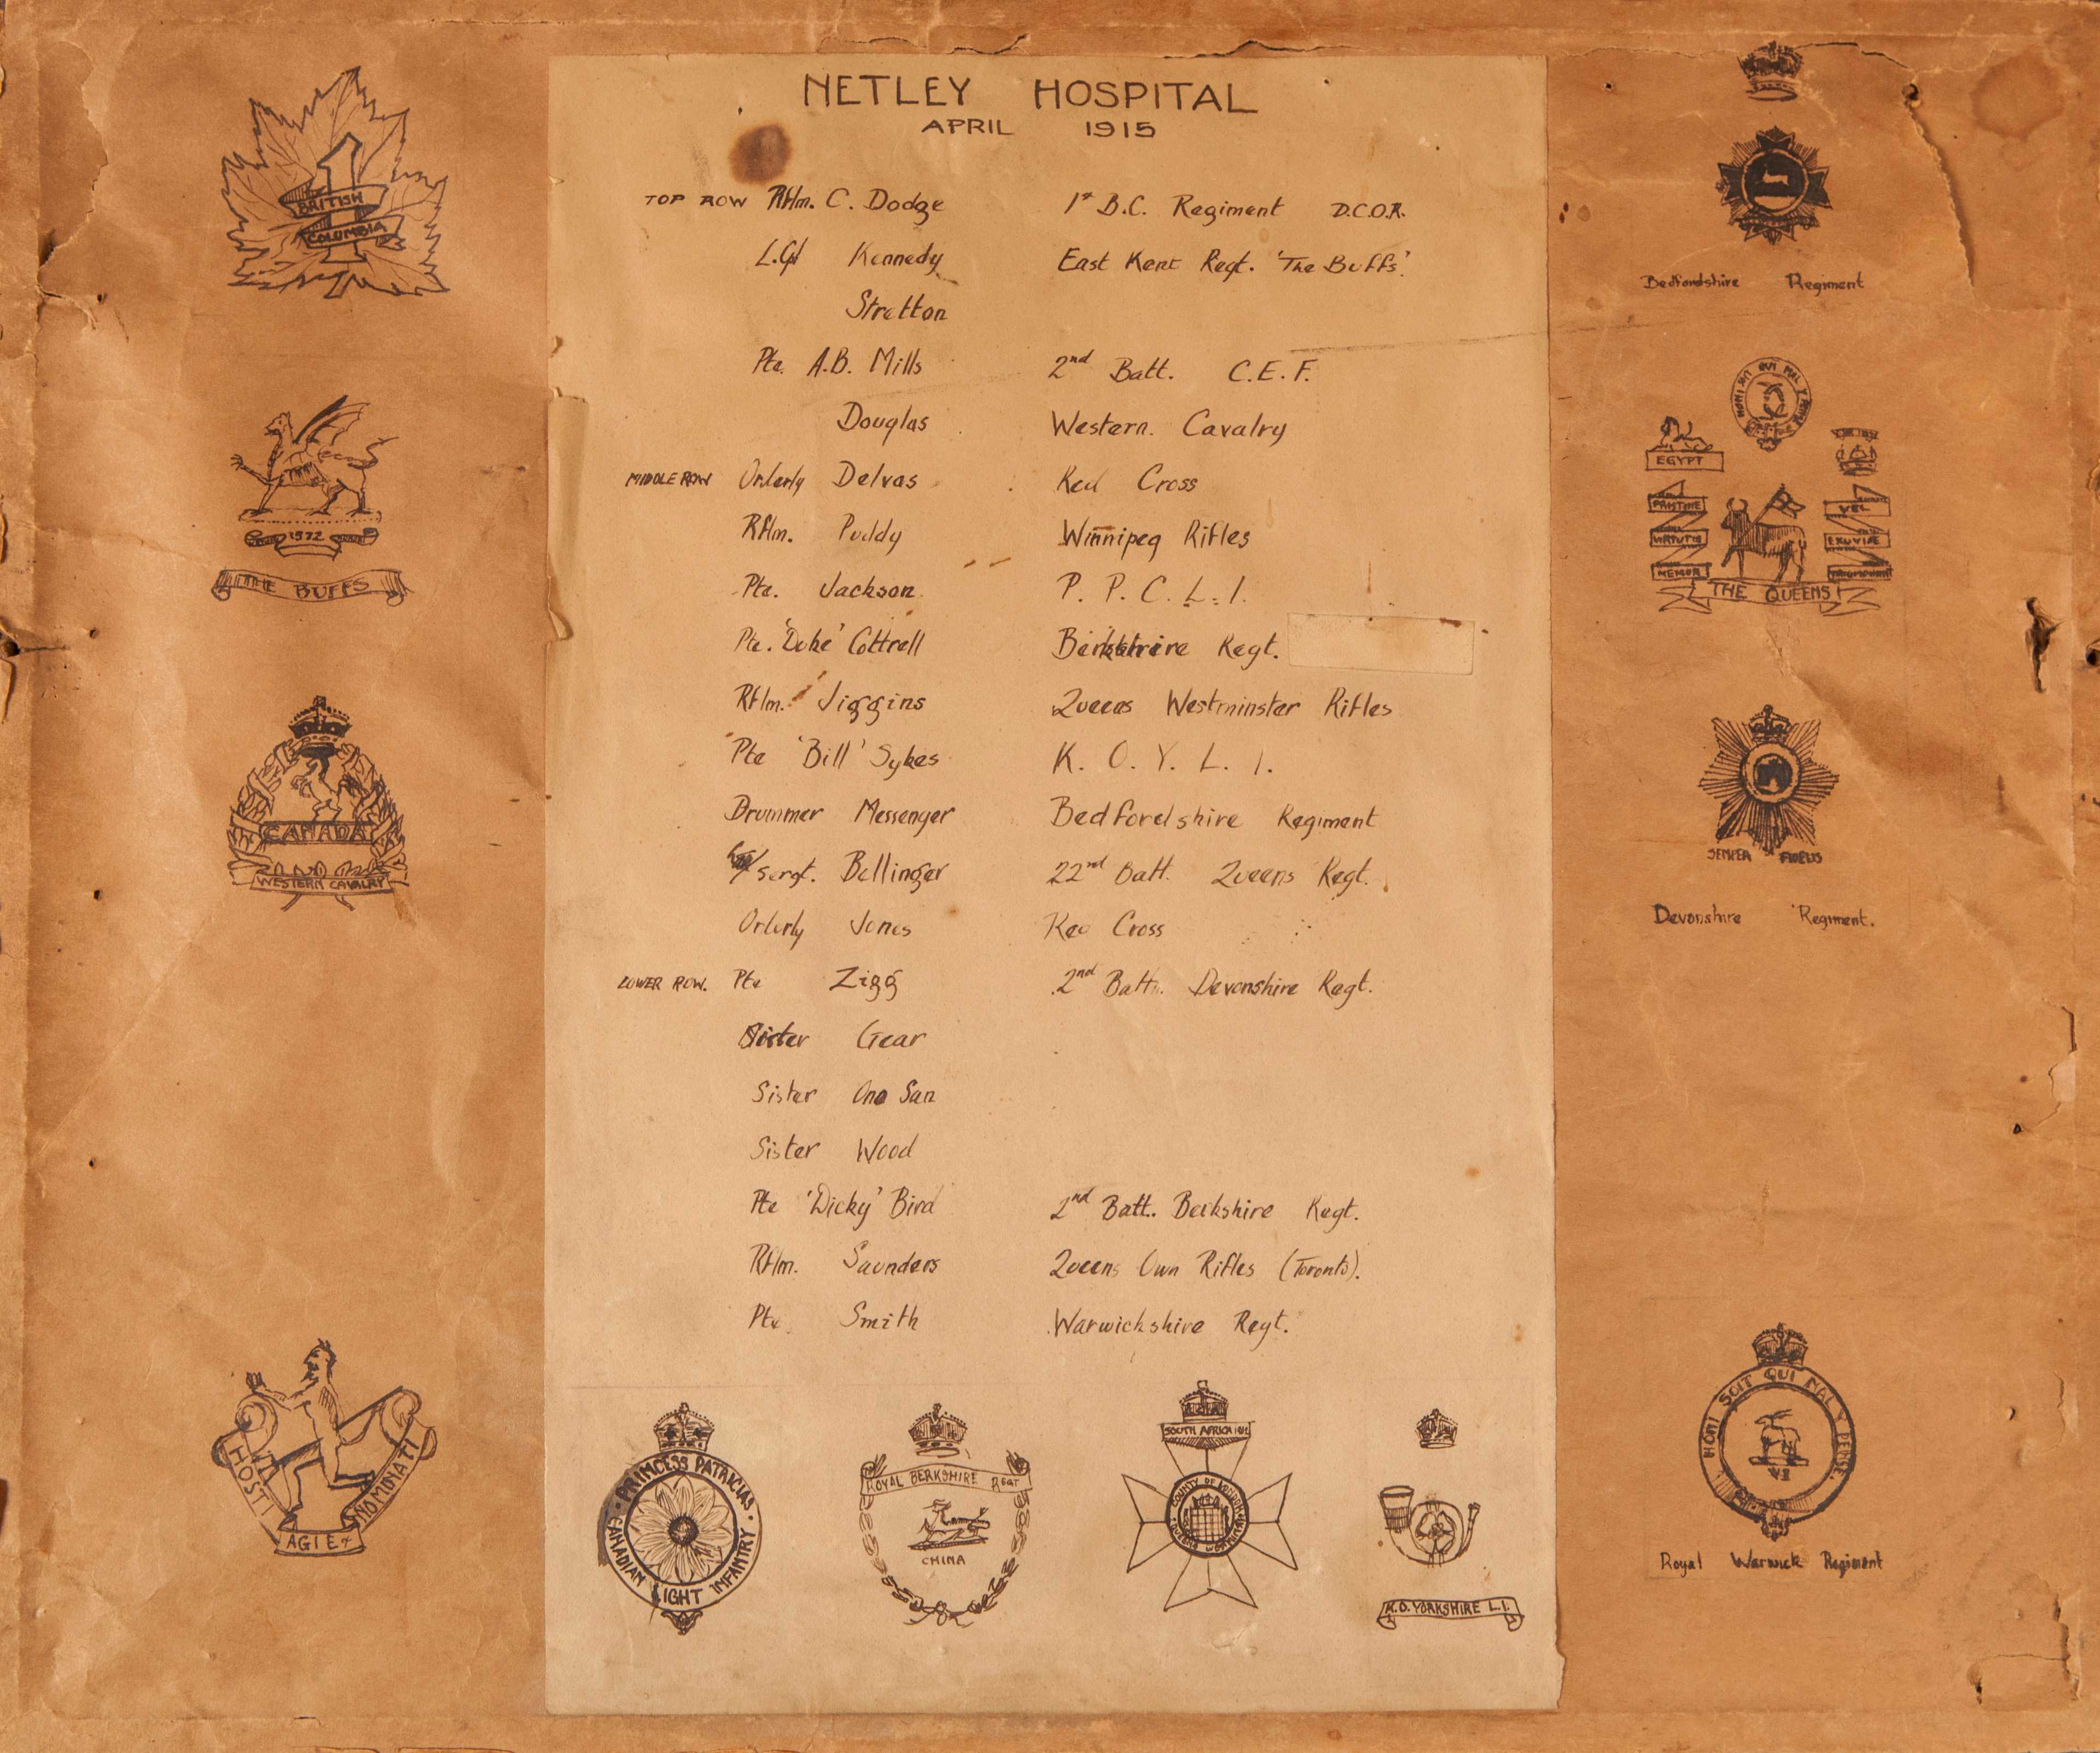 NETLEY HOSPITAL
APRIL 1915
TOP ROW Rflm. C. Dodge 1st B.C. Regiment D.C.O.R.
Kennedy East Kent Regt. 'The Buffs'.
Stretton
Pte. A.B. Mills 2nd Batt. C.E.F.
Douglas Western. Cavalry
MIDDLE ROW Orderly Delvas Red Cross
Rflm. Puddy Winnipeg Rifles
Pte. Jackson P. P. C. L. I.
Pte. 'Duke' Cottrell Berkshire Regt.
Rflm. Jiggins Queens Westminster Rifles
Pte 'Bill' Sykes K. O. Y. L. I.
Drummer Messenger Bedfordshire Regiment
Sergt. Bellinger 22nd Batt. Queens Regt.
Orderly Jones Red Cross
LOWER ROW. Pte Zigg 2nd Batt. Devonshire Regt.
Sister Gear
Sister Ono San
Sister Wood
Pte 'Dicky' Bird 2nd Batt. Berkshire Regt.
Rflm. Saunders Queens Own Rifles (Toronto).
Pte. Smith Warwickshire Regt.
PRINCESS PATRICIAS
CANADIAN LIGHT INFANTRY
ROYAL BERKSHIRE REGT
CHINA
SOUTH AFRICA
COUNTY OF LONDON
K.O. YORKSHIRE L.I.
1
BRITISH
COLUMBIA
1572
THE BUFFS
CANADA
2ND
WESTERN CAVALRY
HOSTI
ACIE
NOMINATI
Bedfordshire Regiment
EGYPT
PRISTINAE
VIRTUTIS
MEMOR
VEL
EXUVIAE
THE QUEENS
SEMPER FIDELIS
Devonshire Regiment.
HONI SOIT QUI MAL Y PENSE.
Royal Warwick Regiment